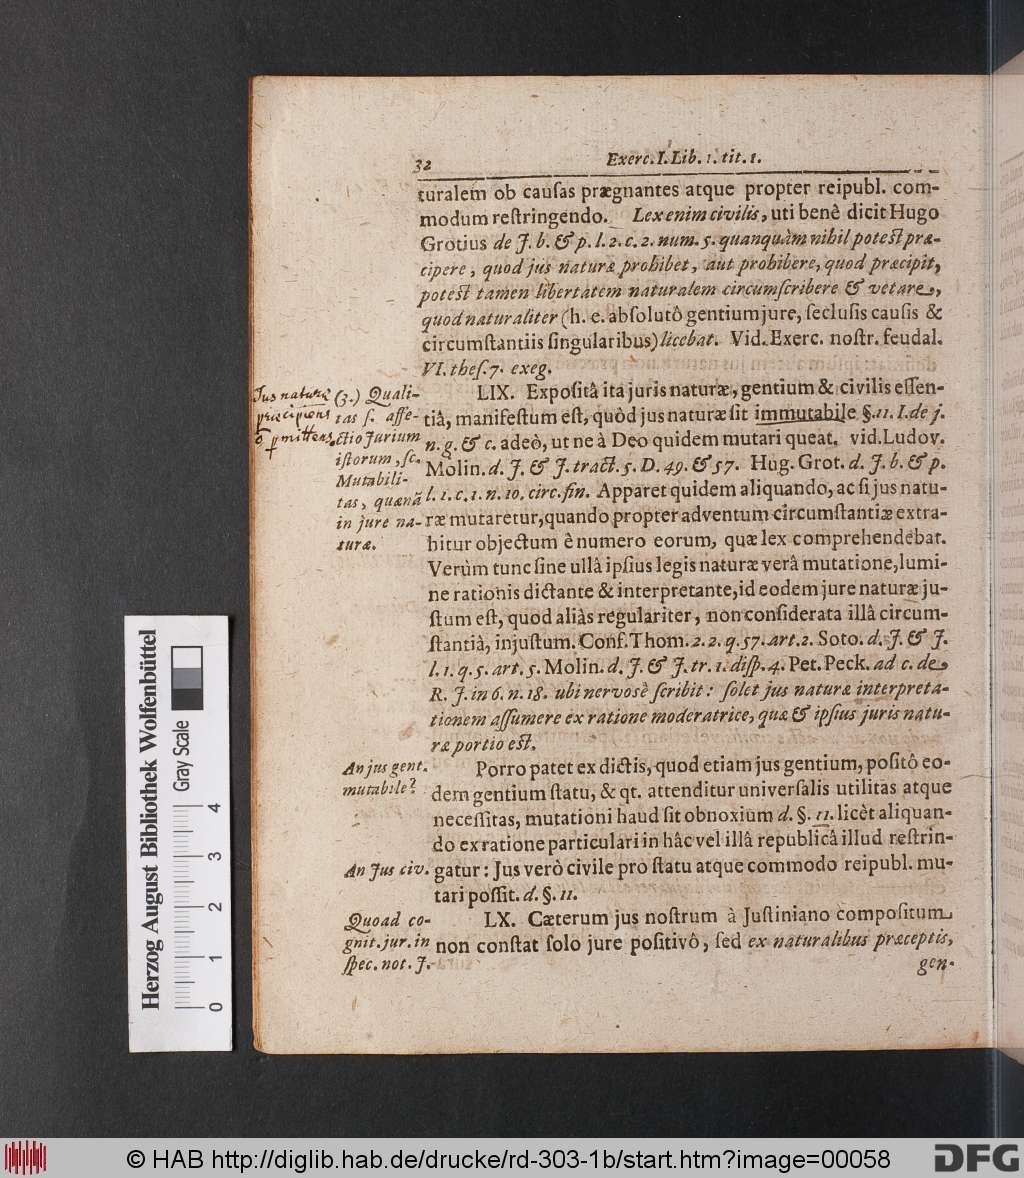 32 Exerc. I. Lib. 1. tit. 1.
turalem ob cauſas prægnantes atque propter reipubl. com-
modum reſtringendo. Lex enim civilis, uti benè dicit Hugo
Grotius de J. b. & p. l. 2. c. 2. num. 5. quanquàm nihil poteſt præ-
cipere, quod jus naturæ prohibet, aut prohibere, quod præcipit,
poteſt tamen libertatem naturalem circumſcribere & vetare,
quod naturaliter (h. e. abſolutô gentium jure, ſecluſis cauſis &
circumſtantiis ſingularibus) licebat. Vid. Exerc. noſtr. feudal.
VI. theſ. 7. exeg.
Jus naturæ
præcipiens
& permittens.
(3.) Quali-
tas ſ. affe-
ctio Jurium
iſtorum, ſc.
Mutabili-
tas, quænã
in jure na-
turæ.
LIX. Expoſitâ ita juris naturæ, gentium & civilis eſſen-
tiâ, manifeſtum eſt, quòd jus naturæ ſit immutabile §. 11. I. de j.
n. g. & c. adeò, ut ne à Deo quidem mutari queat. vid. Ludov.
Molin. d. J. & J. tract. 5. D. 49. & 57. Hug. Grot. d. J. b. & p.
l. 1. c. 1. n. 10. circ. fin. Apparet quidem aliquando, ac ſi jus natu-
ræ mutaretur, quando propter adventum circumſtantiæ extra-
hitur objectum è numero eorum, quæ lex comprehendebat.
Verùm tunc ſine ullâ ipſius legis naturæ verâ mutatione, lumi-
ne rationis dictante & interpretante, id eodem jure naturæ ju-
ſtum eſt, quod aliàs regulariter, non conſiderata illâ circum-
ſtantiâ, injuſtum. Conf. Thom. 2. 2. q. 57. art. 2. Soto. d. J. & J.
l. 1. q. 5. art. 5. Molin. d. J. & J. tr. 1. diſp. 4. Pet. Peck. ad c. de
R. J. in 6. n. 18. ubi nervosè ſcribit: ſolet jus naturæ interpreta-
tionem aſſumere ex ratione moderatrice, quæ & ipſius juris natu-
ræ portio eſt.
An jus gent.
mutabile?
Porro patet ex dictis, quod etiam jus gentium, poſitô eo-
dem gentium ſtatu, & qt. attenditur univerſalis utilitas atque
neceſſitas, mutationi haud ſit obnoxium d. §. 11. licèt aliquan-
do ex ratione particulari in hâc vel illâ republicâ illud reſtrin-
An Jus civ.
gatur: Jus verò civile pro ſtatu atque commodo reipubl. mu-
tari poſſit. d. §. 11.
Quoad co-
gnit. jur. in
ſpec. not. J.
LX. Cæterum jus noſtrum à Juſtiniano compoſitum
non conſtat ſolo jure poſitivô, ſed ex naturalibus præceptis,
gen-
Herzog August Bibliothek Wolfenbüttel
Gray Scale
0 1 2 3 4
© HAB http://diglib.hab.de/drucke/rd-303-1b/start.htm?image=00058
DFG